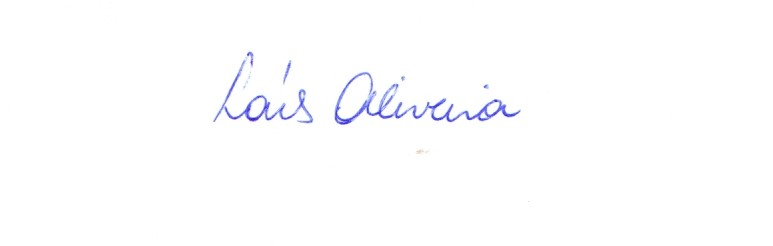 Laís Oliveira